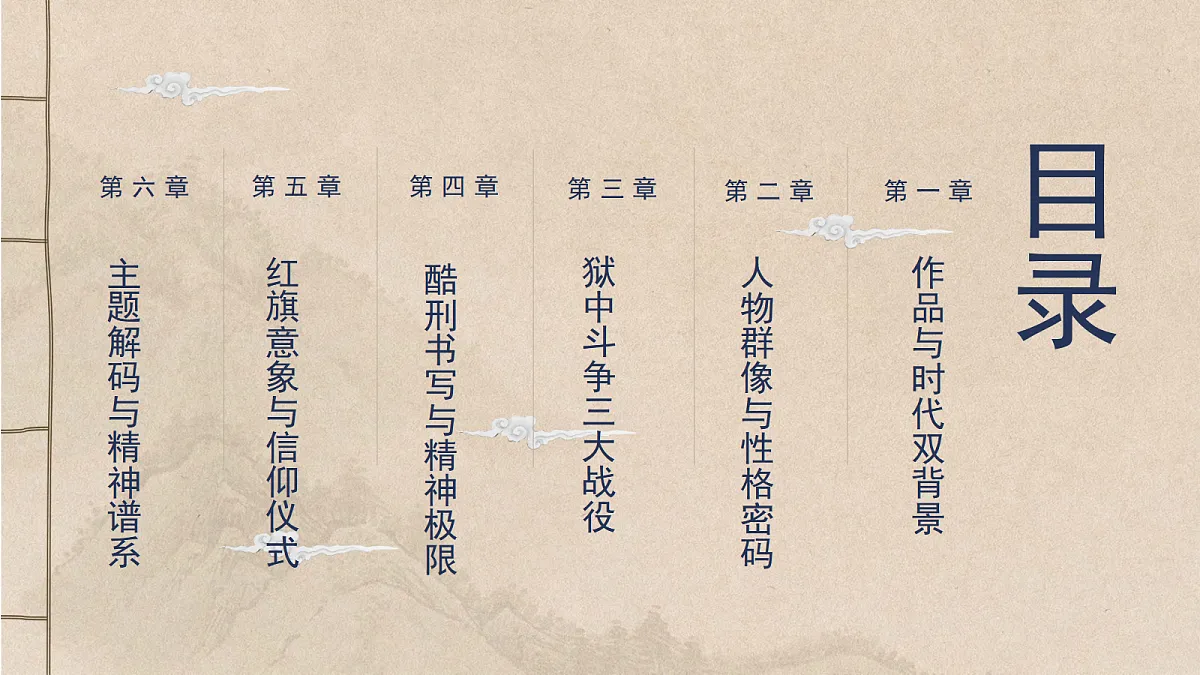 目录
第一章
作品与时代双背景
第二章
人物群像与性格密码
第三章
狱中斗争三大战役
第四章
酷刑书写与精神极限
第五章
红旗意象与信仰仪式
第六章
主题解码与精神谱系